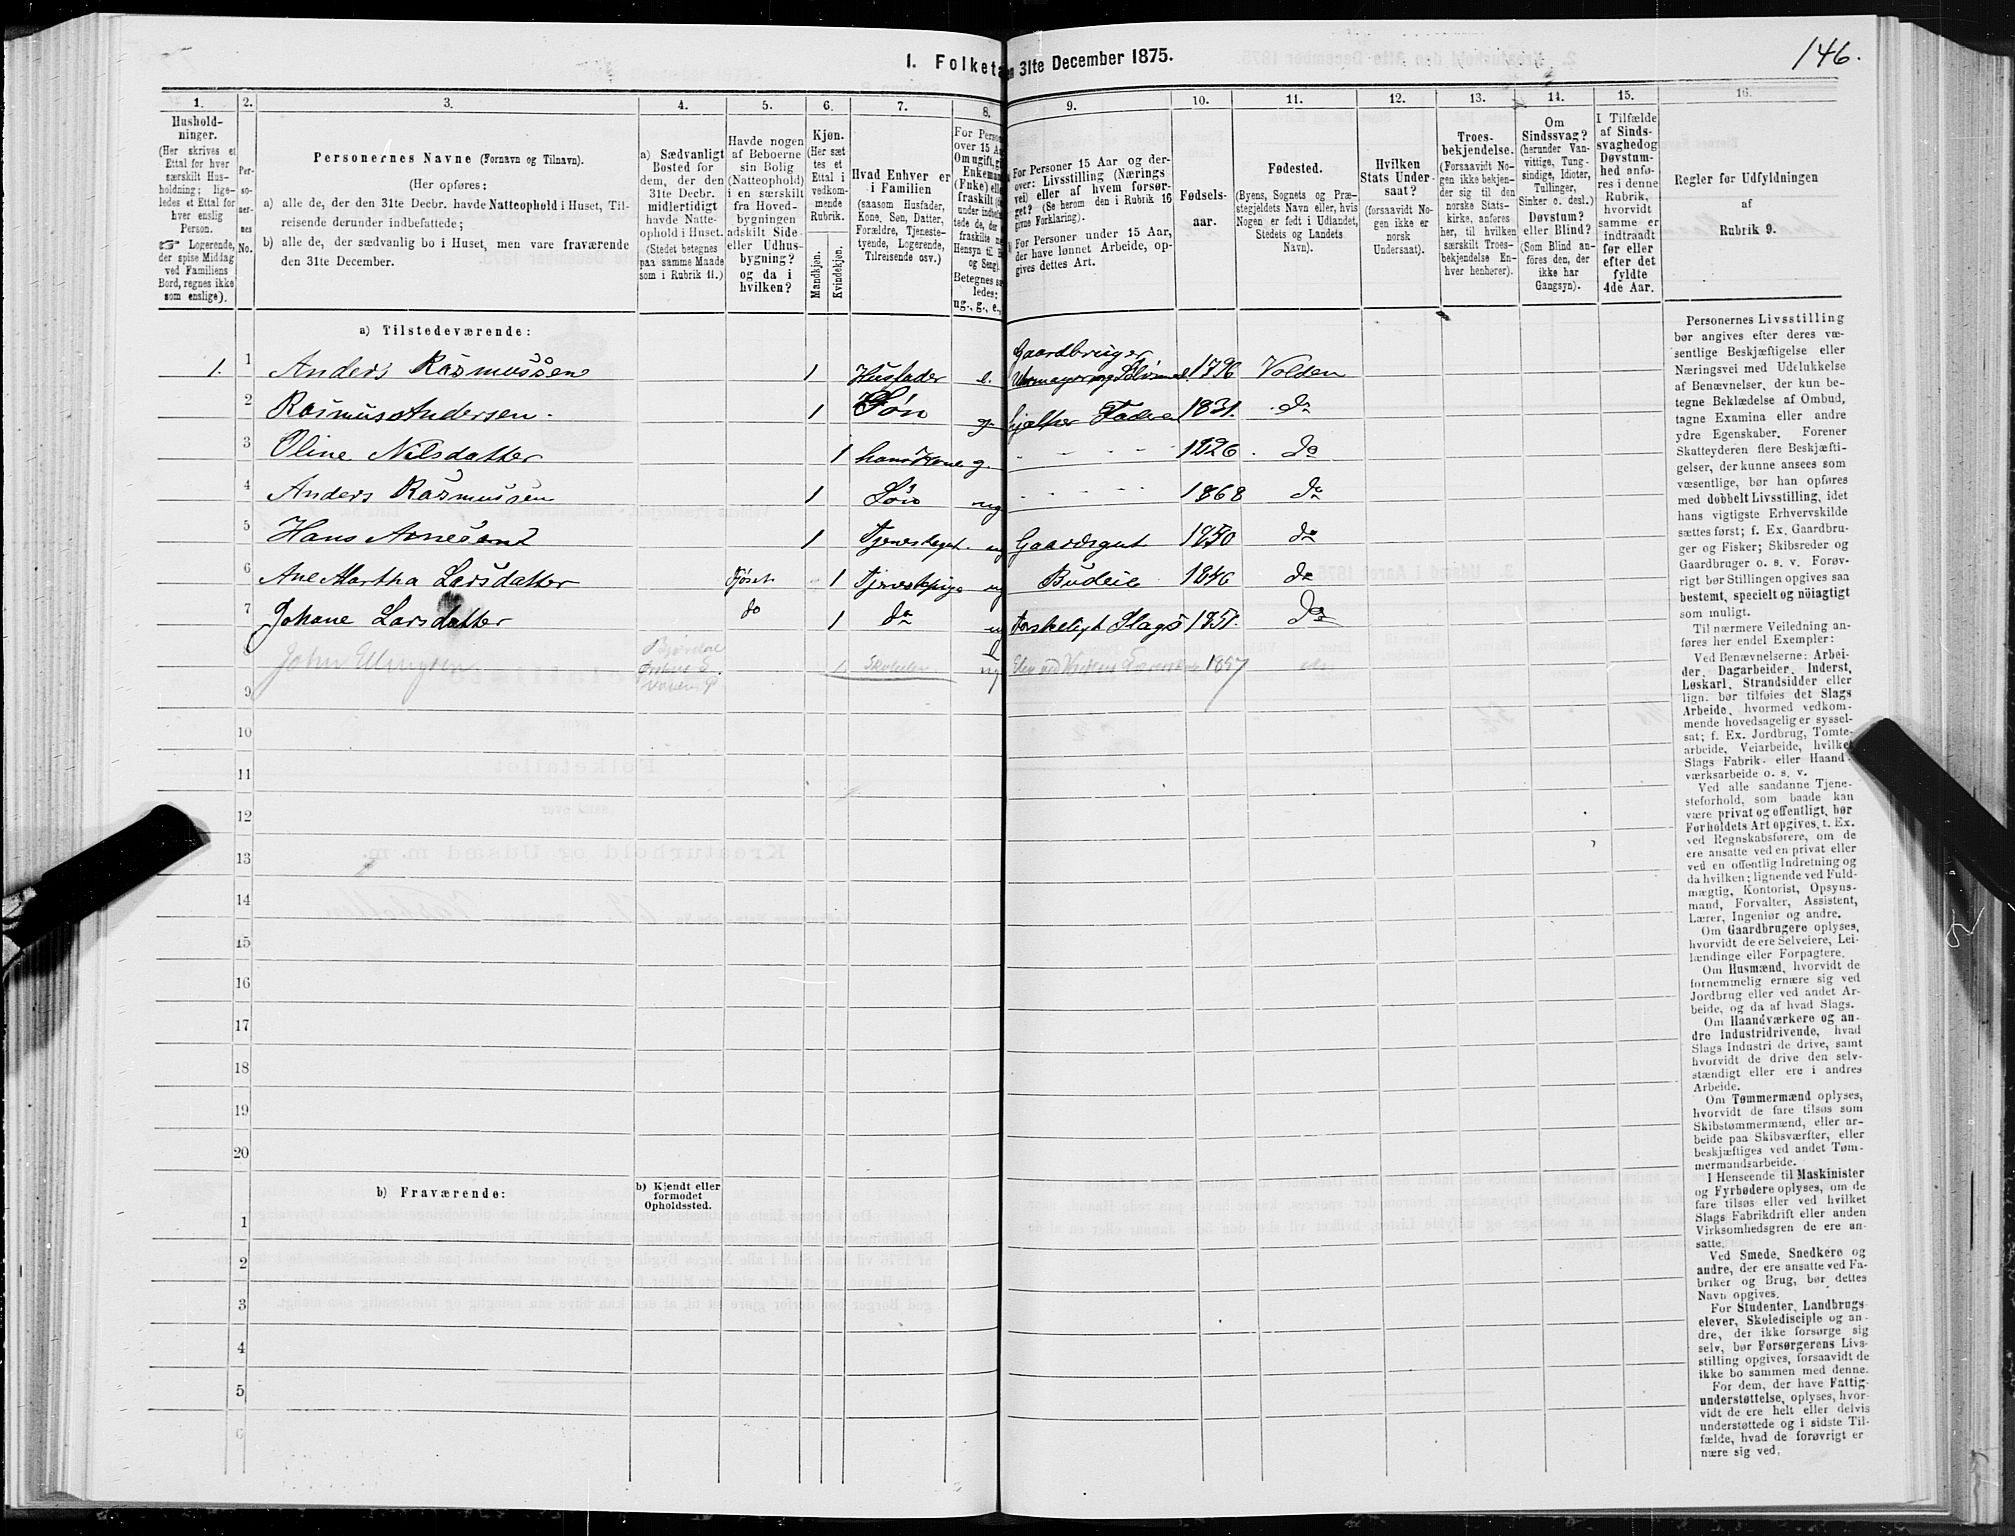 146.
1. Folketa
n 31te December 1875.
1.
2.
3.
4.
5.
6.
7.
8.
9.
10.
11.
12.
13.
14.
15.
16.
Hushold-
ninger.
(Her skrives et
Ettal for hver
særskilt Hus-
holdning; lige-
ledes et Ettal for
hver enslig
Person.
Logerende,
der spise Middag
ved Familiens
Bord, regnes ikke
som enslige).
Per-
so-
ner-
nes
No.
Personernes Navne (Fornavn og Tilnavn).
(Her opføres:
a) alle de, der den 31te Decbr. havde Natteophold i Huset, Til-
reisende derunder indbefattede;
b) alle de, der sædvanlig bo i Huset, men vare fraværende
den 31te December.
a) Sædvanligt
Bosted for
dem, der den
31te Decbr.
midlertidigt
havde Natte-
ophold i Huset.
(Stedet betegnes
paa samme Maade
som i Rubrik 11.)
Havde nogen
af Beboerne
sin Bolig
(Natteophold)
i en særskilt
fra Hoved-
bygningen
adskilt Side-
eller Udhus-
bygning?
og da i
hvilken?
Kjøn.
(Her sæt-
tes et
Ettal i
vedkom-
mende
Rubrik.
Mandkjøn.
Kvindekjøn.
Hvad Enhver er
i Familien
(saasom Husfader,
Kone, Søn, Datter,
Forældre, Tjeneste-
tyende, Logerende,
Tilreisende osv.)
For Perso
over 15 A
Om ugift, gif
Enkeman
(Fnke) elle
fraskilt (
under indbe
tede de, der
fraskilte m
Hensyn til B
og Seng).
Betegnes sa
ledes:
ug., g., e.,
For Personer 15 Aar og der-
over: Livsstilling (Nærings-
vei) eller af hvem forsør-
get? (Se herom den i Rubrik 16
givne Forklaring).
For Personer under 15 Aar,
der have lønnet Arbeide, op-
gives dettes Art.
Fødsels-
aar.
Fødested.
(Byens, Sognets og Præ-
stegjeldets Navn eller, hvis
Nogen er født i Udlandet,
Stedets og Landets
Navn).
Hvilken
Stats Under-
saat?
(forsaavidt No-
gen ikke er
norsk
Undersaat).
Troes-
bekjendelse.
(Forsaavidt No-
gen ikke bekjen-
der sig til den
norske Stats-
kirke, anføres
her, til hvilken
særskilt Troes-
bekjendelse En-
hver henhører).
Om
Sindssvag?
(herunder Van-
vittige, Tung-
sindige, Idioter,
Tullinger,
Sinker o. desl.)
Døvstum?
eller Blind?
(Som Blind an-
føres den, der
ikke har
Gangsyn).
I Tilfælde
af Sinds-
svaghed og
Døvstum-
hed anfø-
res i denne
Rubrik,
hvorvidt
samme er
indtraadt
før eller
efter det
fyldte
4de Aar.
Regler for Udfyldningen
af
Rubrik 9.
a) Tilstedeværende:
Gaardbruger
1. 1 Anders Rasmussen 1 Husfader e. 1796 Volden
2 Rasmus Andersen. 1 Søn g. hjælper Fader 1831. do
3 Oline Nilsdatter 1 hans Kone g. " " " " 1826. do
4 Anders Rasmussen 1 Søn ug " " " " 1868 do
5 Hans Arnesen 1 Tjenestegut. ug Gaardsgut 1850 do
6 Ane Martha Larsdatter Fjøset 1 Tjenestepige ug Budeie 1846 do
7 Johane Larsdatter do 1 do ug forskeligt Slags 1851. do
8 John 1 ug 1857
9
10
11
12
13
14
15
16
17
18
19
20
b) Fraværende:
b) Kjendt eller
formodet
Opholdssted.
1
2
3
4
5
6
Personernes Livsstilling
bør angives efter deres væ-
sentlige Beskjæftigelse eller
Næringsvei med Udelukkelse
af Benævnelser, der kun be-
tegne Beklædelse af Ombud,
tagne Examina eller andre
ydre Egenskaber. Forener
Skatteyderen flere Beskjæfti-
gelser, der kunne ansees som
væsentlige, bør han opføres
med dobbelt Livsstilling, idet
hans vigtigste Erhvervskilde
sættes først; f. Ex. Gaardbru-
ger og Fisker; Skibsreder og
Gaardbruger o. s. v. Forøv-
rigt bør Stillingen opgives saa
bestemt, specielt og nöiagtigt
som muligt.
Til nærmere Veiledning an-
føres her endel Exempler:
Ved Benævnelserne: Arbei-
der, Dagarbeider, Inderst,
Løskarl, Strandsidder eller
lign. bør tilføies det Slags
Arbeide, hvormed vedkom-
mende hovedsagelig er syssel-
sat; f. Ex. Jordbrug, Tomte-
arbeide, Veiarbeide, hvilket
Slags Fabrik- eller Haand-
værksarbeide o. s. v.
Ved alle saadanne Tjene-
steforhold, som baade kan
være privat og offentligt, bør
Forholdets Art opgives, t. Ex.
ved Regnskabsførere, om de
ere ansatte ved en privat eller
ved en offentlig Indretning og
da hvilken; lignende ved Fuld-
mægtig, Kontorist, Opsyns-
mand, Forvalter, Assistent,
Lærer, Ingeniør og andre.
Om Gaardbrugere oplyses,
hvorvidt de ere Selveiere, Lei-
lændinge eller Forpagtere.
Om Husmænd, hvorvidt de
fornemmelig ernære sig ved
Jordbrug eller ved andet Ar-
beide, og da af hvad Slags.
Om Haandværkere og an-
dre Industridrivende, hvad
Slags Industri de drive, samt
hvorvidt de drive den selv-
stændigt eller ere i andres
Arbeide.
Om Tømmermænd oplyses,
hvorvidt de fare tilsøs som
Skibstømmermænd, eller ar-
beide paa Skibsværfter, eller
beskjæftiges ved andet Tøm-
mermandsarbeide.
I Henseende til Maskinister
og Fyrbødere oplyses, om de
fare tilsøs eller ved hvilket
Slags Fabrikdrift eller anden
Virksomhedsgren de ere an-
satte.
Ved Smede, Snedkere og
andre, der ere ansatte ved Fa-
briker og Brug, bør dettes
Navn opgives.
For Studenter, Landbrugs-
elever, Skoledisciple og an-
dre, der ikke forsørge sig
selv, bør Forsørgerens Livs-
stilling opgives, forsaavidt de
ikke bo sammen med denne.
For dem, der have Fattig-
understøttelse, oplyses, hvor-
vidt de ere helt eller delvis
understøttede og i sidste Til-
fælde, hvad de forøvrigt er-
nære sig ved.